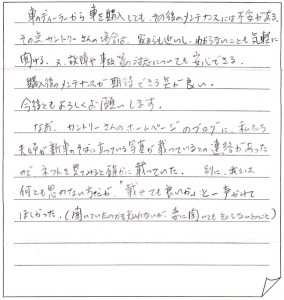 車のディーラーから車を購入しても、その後のメンテナンスには不安がある。
その点カントリーさんの場合は、家からも近いし、わからないことも気軽に
聞ける。又、故障や事故等の対応についても安心できる。
購入後のメンテナンスが期待できる点が良い。
今後ともよろしくお願いします。
なお、カントリーさんのホームページのブログに、私たち
夫婦が新車のそばに立っている写真が載っているとの連絡があった
のでネットを見てみると確かに載っていた。別に、我々は
何とも思わないのだが、「載せても良いか」と一声かけて
ほしかった。(聞いていたのかも知れないが、妻に聞いても知らないとのこと)